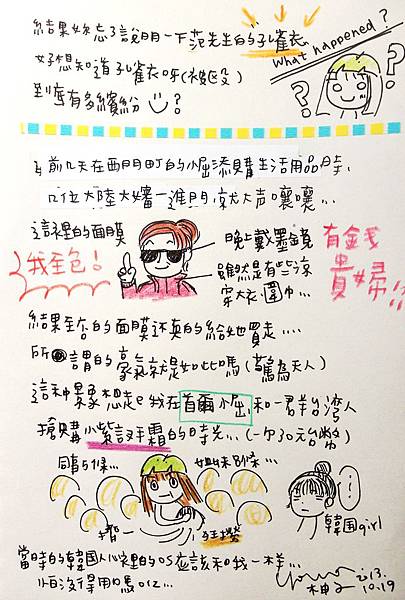 結果妳忘了說明一下范先生的孔雀衣
What happened?
好想知道孔雀衣呀(被毆)
到底有多繽紛 ?
前幾天在西門町的小堀添購生活用品時,
幾位大陸大嬸一進門,就大声嚷嚷...
這裡的面膜
我全包!
晚上戴墨鏡
雖然是有些涼
穿大衣圍巾...
有金錢
貴婦!!
結果全台的面膜还真的給她買走....
所謂的豪氣就是如此嗎(驚為天人)
這种景象想起我在首爾小屈,和一群台灣人
搶購小紫詳霜的時光...(一个30元台幣)
同事5條...
姐妹8條...
韓国girl
當時的韓国人心裡的OS应該和我一樣...
怕沒得用嗎 or2...
柚子
2013.
10.19